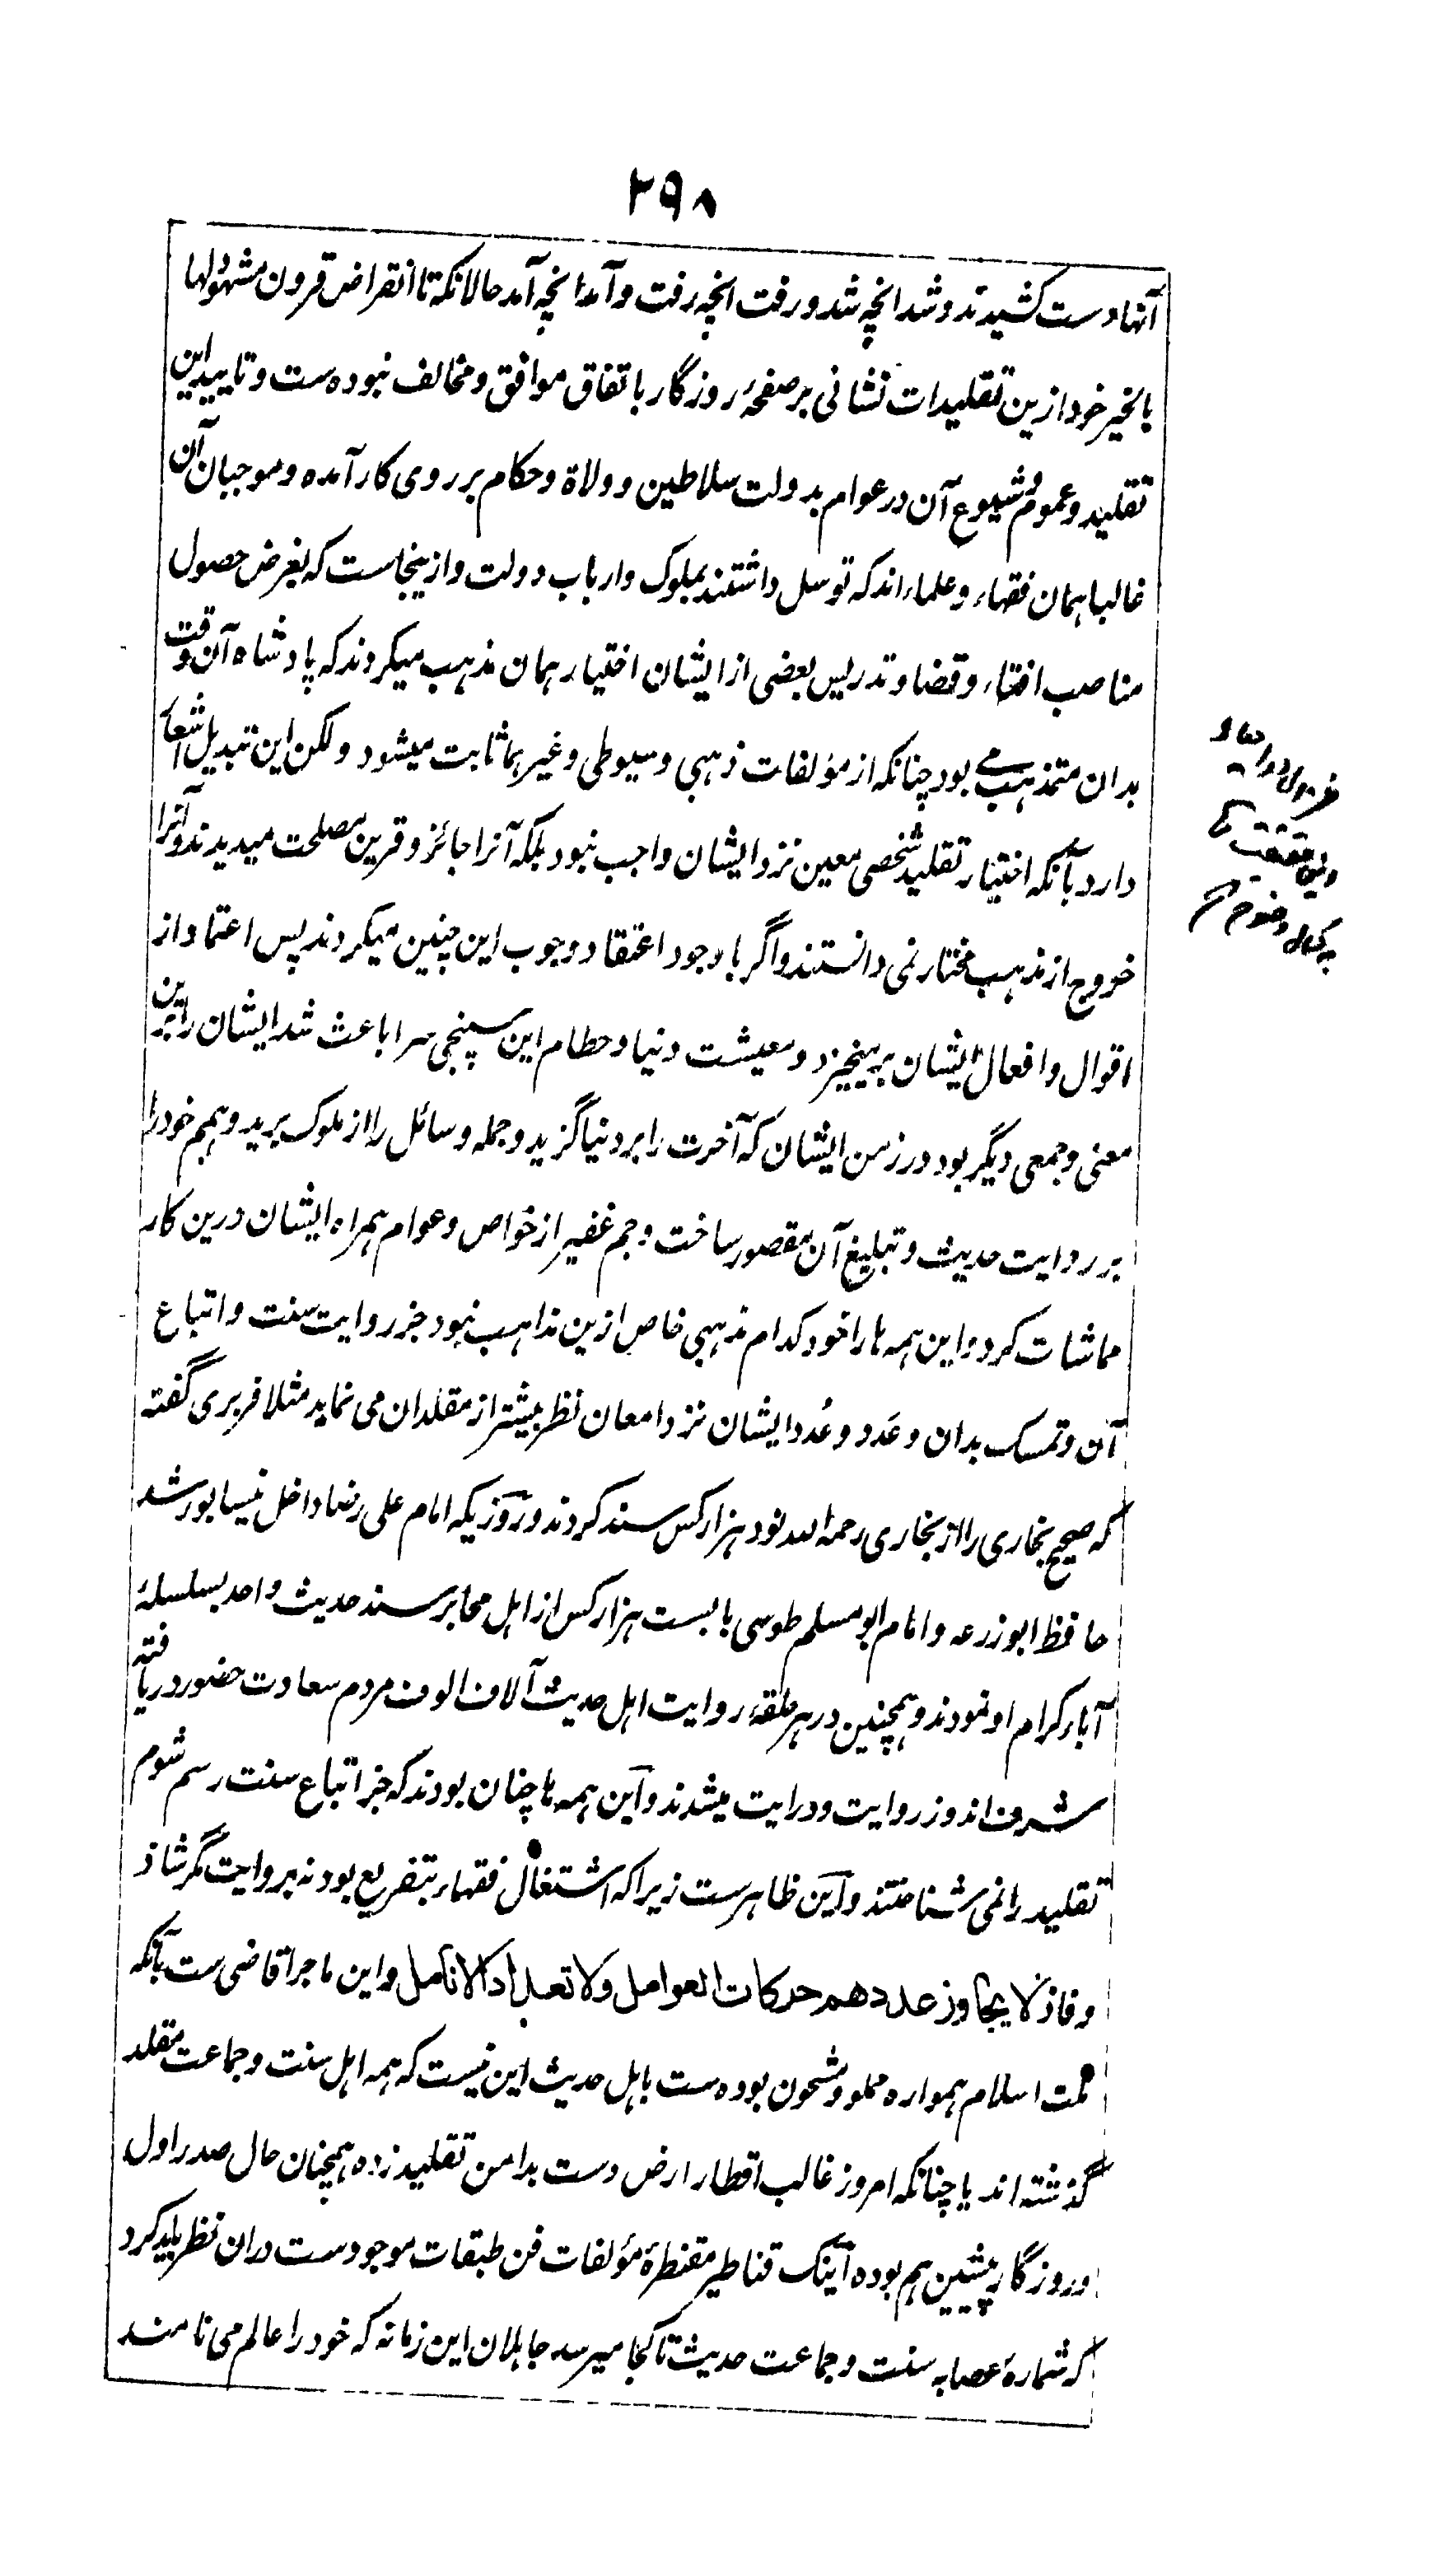 ۲۹۸
آنها دست کشیدند و شد انچه شد و رفت انچه رفت و آمد انچه آمد حالانکه تا انقراض قرون مشهود لها
بالخیر خود ازین تقلیدات نشانی بر صفحهٔ روزگار باتفاق موافق و مخالف نبوده ست و تایید این
تقلید و عموم و شیوع آن در عوام بدولت سلاطین و ولاة و حکام بر روی کار آمده و موجبان آن
غالبا همان فقهاء و علماء اند که توسل داشتند بملوک و ارباب دولت و ازینجاست که بغرض حصول
مناصب افتاء و قضا و تدریس بعضی از ایشان اختیار همان مذهب میکردند که پادشاه آن وقت
بدان متمذهب می بود چنانکه از مؤلفات ذهبی و سیوطی و غیرهما ثابت میشود ولکن این تبدیل اشعار
دارد بآنکه اختیار تقلید شخصی معین نزد ایشان واجب نبود بلکه آنرا جائز و قرین مصلحت میدیدند و آنرا
خروج از مذهب مختار نمی دانستند و اگر باوجود اعتقاد وجوب این چنین میکردند پس اعتماد از
اقوال و افعال ایشان برمیخیزد و معیشت دنیا و حطام این سپنجی سرا باعث شد ایشان را برین
معنی و جمعی دیگر بود در زمن ایشان که آخرت را بر دنیا گزید و جمله وسائل را از ملوک برید و همم خود را
بر روایت حدیث و تبلیغ آن مقصور ساخت و جم غفیر از خواص و عوام همراه ایشان درین کار
مماشات کرد و این همه ها را خود کدام مذهبی خاص ازین مذاهب نبود جز روایت سنت و اتباع
آن و تمسک بدان و عَدد و عُدد ایشان نزد امعان نظر بیشتر از مقلدان می نماید مثلا فربری گفته
که صحیح بخاری را از بخاری رحمه الله نود هزار کس سند کردند و روزیکه امام علی رضا داخل نیسابور شد
حافظ ابو زرعه و امام ابو مسلم طوسی با بست هزار کس از اهل محابر سند حدیث واحد بسلسلهٔ
آباء کرام او نمودند و همچنین در هر حلقهٔ روایت اهل حدیث آلاف الوف مردم سعادت حضور دریافته
شرف اندوز روایت و درایت میشدند و این همه ها چنان بودند که جز اتباع سنت رسم شوم
تقلید را نمی شناختند و این ظاهرست زیرا که اشتغال فقهاء بتفریع بود نه بروایت مگر شاذ
و فاذ لا یجاوز عددهم حرکات العوامل ولا تعد الا نامل و این ماجرا قاضی ست بآنکه
ملت اسلام همواره مملو و مشحون بوده ست باهل حدیث این نیست که همه اهل سنت و جماعت مقلد
گذشته اند یا چنانکه امروز غالب اقطار ارض دست بدامن تقلید زده همچنان حال صدر اول
و روزگار پیشین هم بوده اینک قناطیر مقنطرهٔ مؤلفات فن طبقات موجودست دران نظر باید کرد
که شمارهٔ عصابه سنت و جماعت حدیث تا کجا میرسد جاهلان این زمانه که خود را عالم می نامند